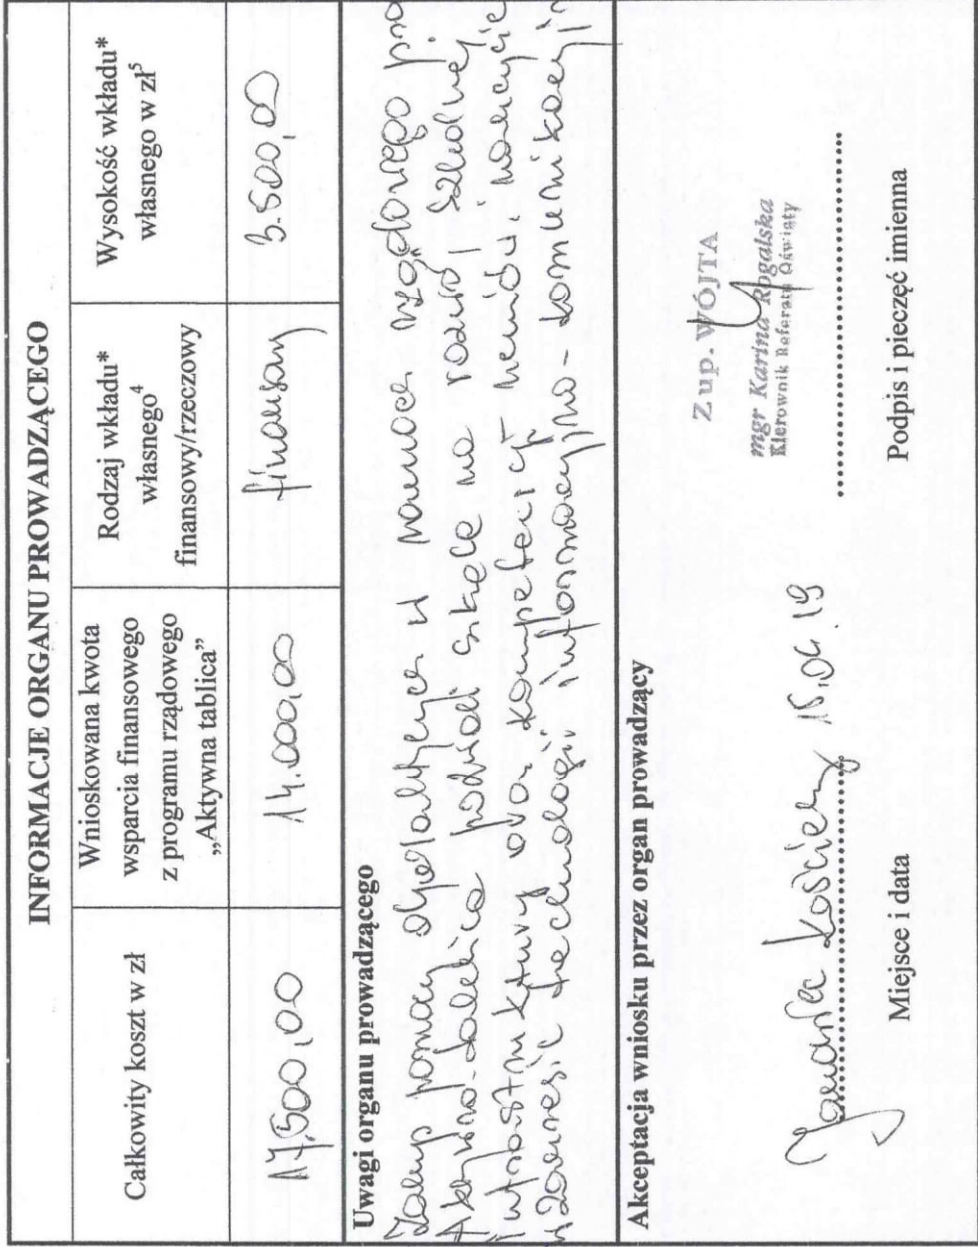 INFORMACJE ORGANU PROWADZĄCEGO
Całkowity koszt w zł
Wnioskowana kwota
wsparcia finansowego
z programu rządowego
„Aktywna tablica”
Rodzaj wkładu*
własnego⁴
finansowy/rzeczowy
Wysokość wkładu*
własnego w zł⁵
17.500,00
14.000,00
finansowy
3.500,00
Uwagi organu prowadzącego
Zakup pomocy dydaktycznych w ramach rządowego
Aktywna tablica szkole na rozwój szkolnej
infrastruktury oraz kompetencji uczniów i nauczycieli
w zakresie technologii informacyjno-komunikacyjn
Akceptacja wniosku przez organ prowadzący
Z up. WÓJTA
mgr Karina Rogalska
Kierownik Referatu Oświaty
Kościelny 15.04.19
Miejsce i data
Podpis i pieczęć imienna